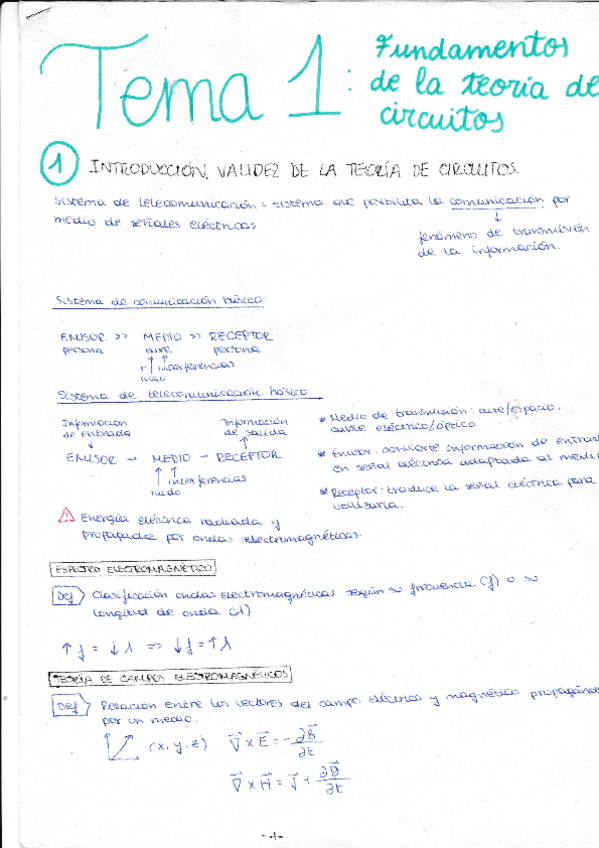 Tema 1: Fundamentos
de la teoría de
circuitos
1 INTRODUCCIÓN, VALIDEZ DE LA TEORÍA DE CIRCUITOS.
Sistema de telecomunicación = sistema que posibilita la comunicación por
medio de señales eléctricas
↓
fenómeno de transmisión
de la información.
Sistema de comunicación básico:
EMISOR >> MEDIO >> RECEPTOR
persona aire persona
↑ ↑ interferencias
ruido
Sistema de telecomunicación básico:
Información de entrada
Información de salida
↓ ↑
EMISOR → MEDIO → RECEPTOR
↑ ↑ interferencias
ruido
* Medio de transmisión: aire/espacio,
cable eléctrico/óptico
* Emisor: convierte información de entrada
en señal eléctrica adaptada al medio
* Receptor: traduce la señal eléctrica para
utilizarla.
⚠ Energía eléctrica radiada y
propagada por ondas electromagnéticas.
ESPECTRO ELECTROMAGNÉTICO
Def Clasificación ondas electromagnéticas según su frecuencia (f) o su
longitud de onda (λ)
↑f = ↓λ => ↓f = ↑λ
TEORÍA DE CAMPOS ELECTROMAGNÉTICOS
Def Relación entre los vectores del campo eléctrico y magnético
por un medio.
(x, y, z) ∇⃗ x E⃗ = -∂B⃗/∂t
∇⃗ x H⃗ = J⃗ + ∂D⃗/∂t
-1-